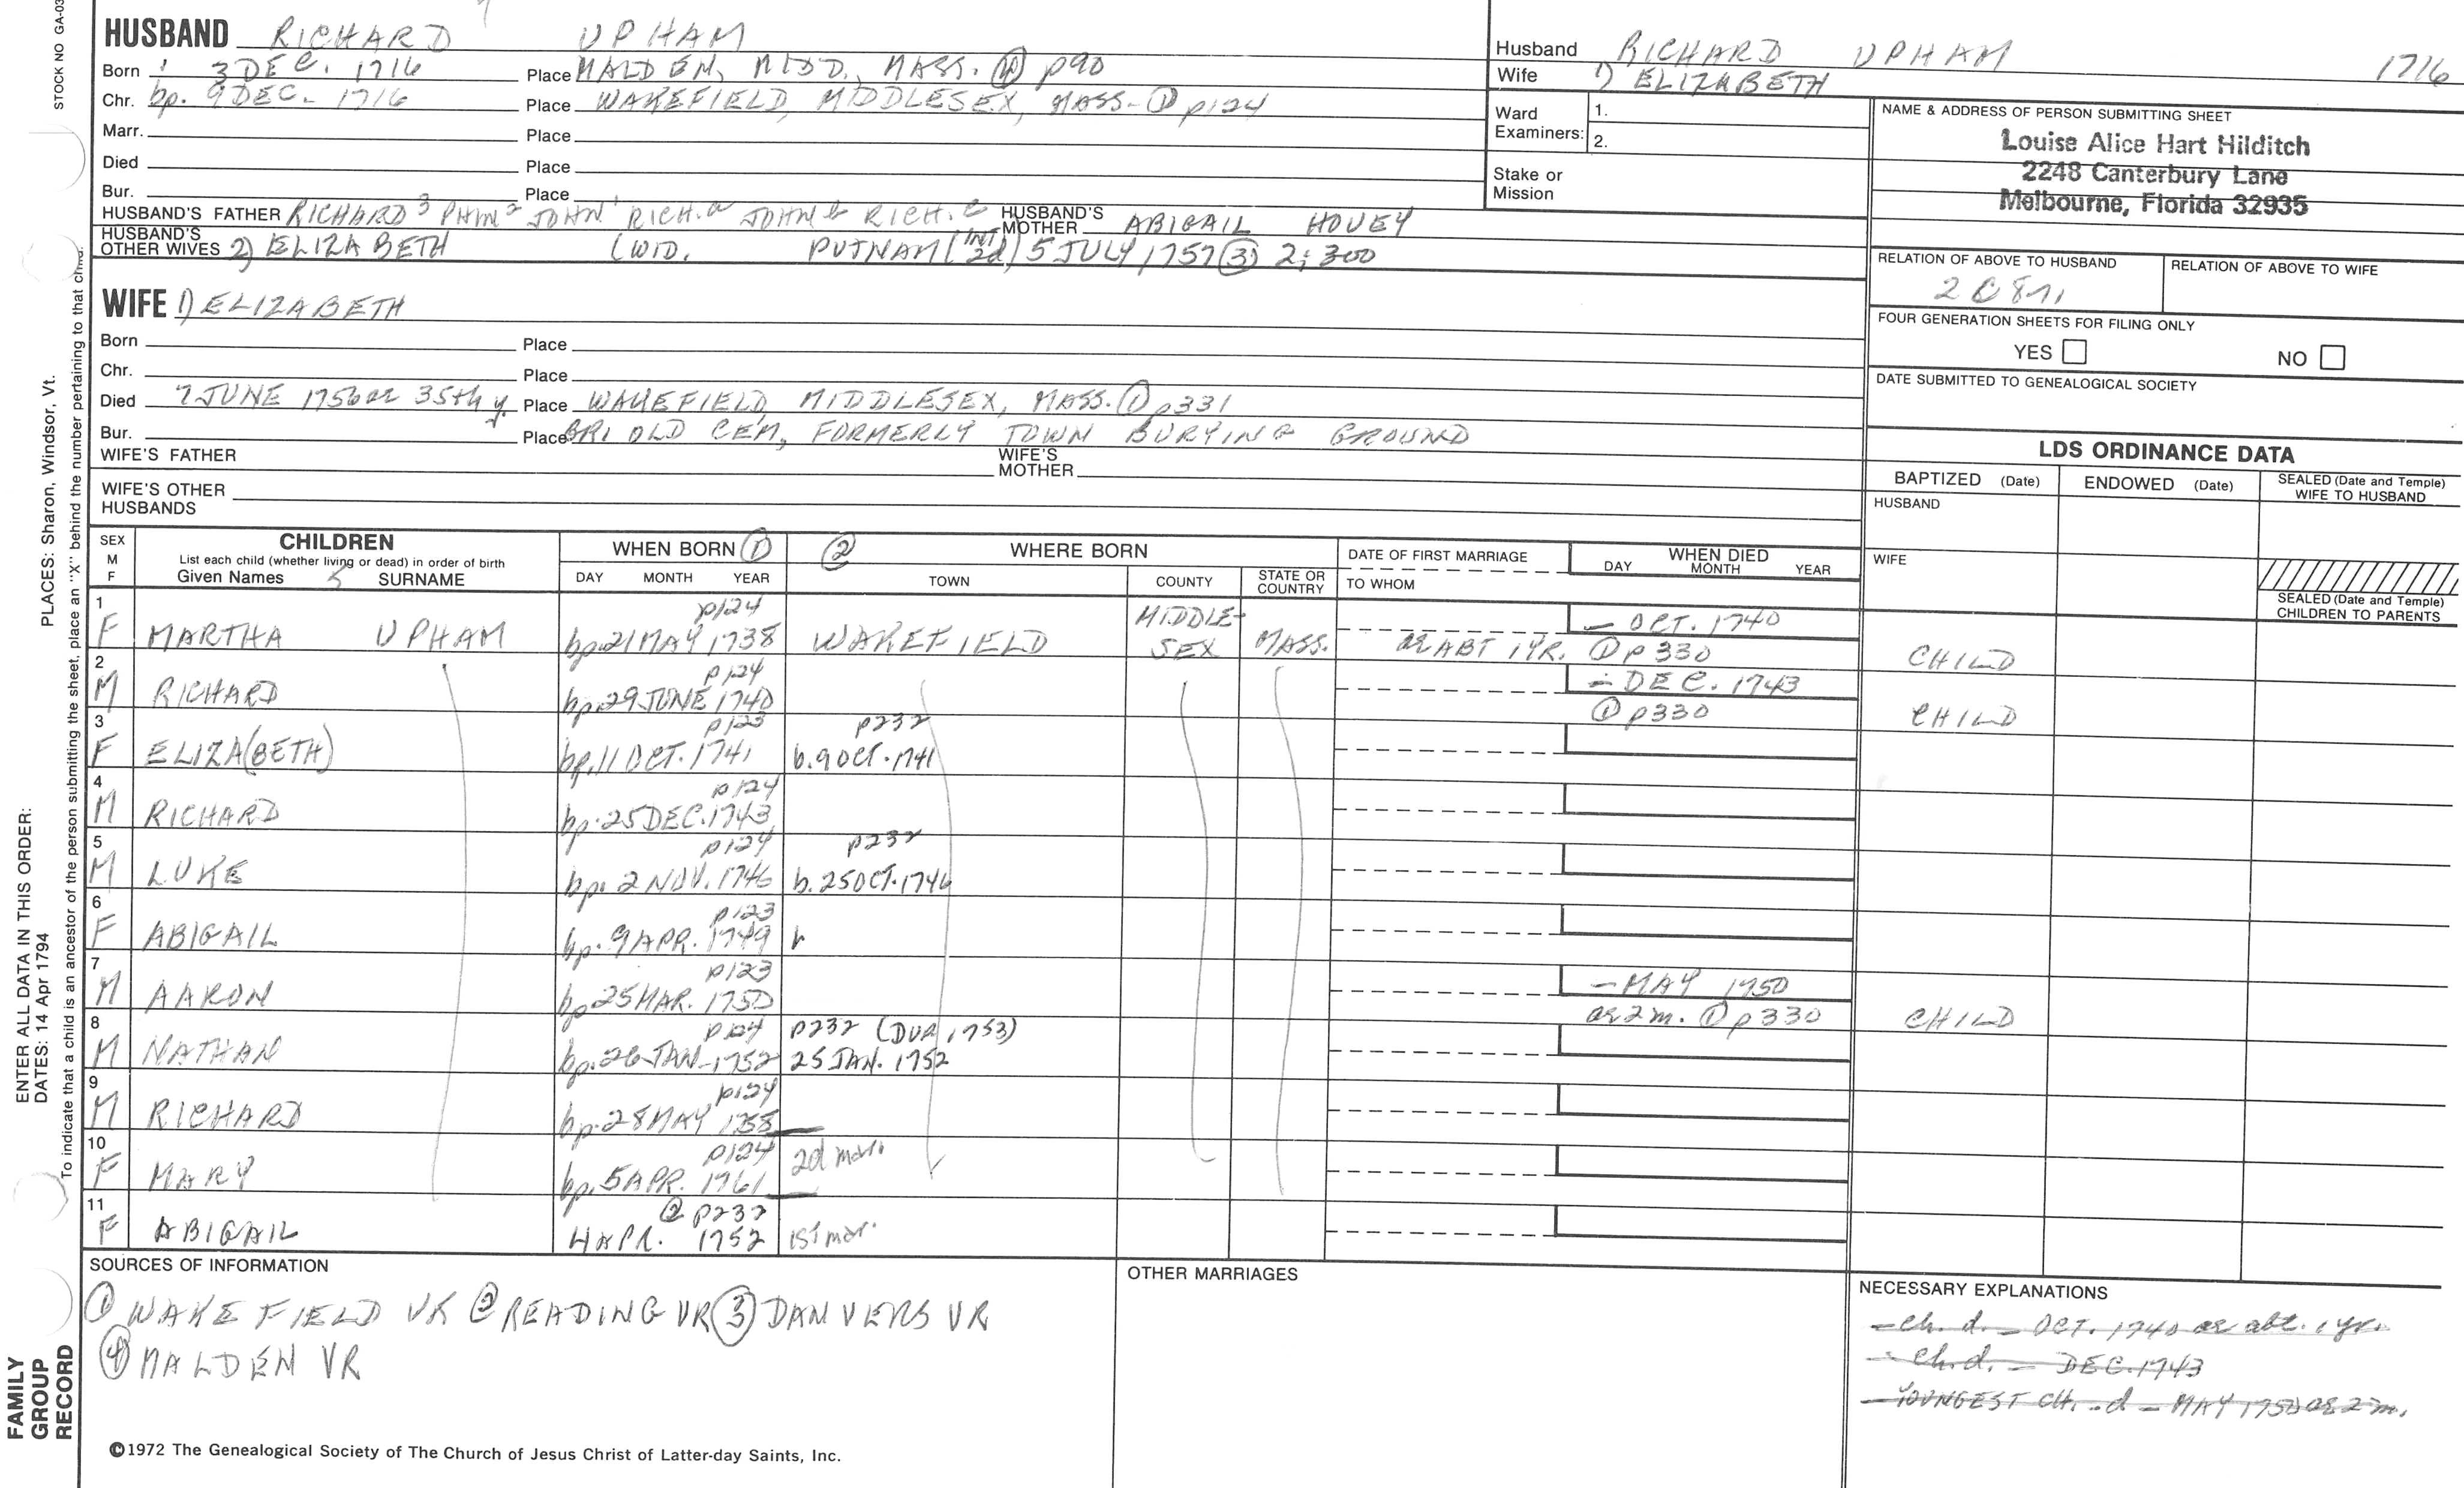 STOCK NO GA-03
HUSBAND RICHARD UPHAM
Born 3 DEC. 1716 Place MALDEN, MIDD., MASS. ④ p90
Chr. bp. 9 DEC. 1716 Place WAKEFIELD, MIDDLESEX, MASS- ① p124
Marr. Place
Died Place
Bur. Place
HUSBAND'S FATHER RICHARD³ PHIN² JOHN¹ RICH.a JOHN b RICH. c HUSBAND'S MOTHER ABIGAIL HOVEY
HUSBAND'S OTHER WIVES 2) ELIZABETH (WID. PUTNAM (INT 2d) 5 JULY 1757 ③ 2; 300
WIFE 1) ELIZABETH
Born Place
Chr. Place
Died 7 JUNE 1756 ae 35th y. Place WAKEFIELD, MIDDLESEX, MASS. ① p331
Bur. Place GR1 OLD CEM, FORMERLY TOWN BURYING GROUND
WIFE'S FATHER WIFE'S MOTHER
WIFE'S OTHER HUSBANDS
Husband RICHARD UPHAM 1716
Wife 1) ELIZABETH
Ward Examiners: 1.
2.
Stake or Mission
NAME & ADDRESS OF PERSON SUBMITTING SHEET
Louise Alice Hart Hilditch
2248 Canterbury Lane
Melbourne, Florida 32935
RELATION OF ABOVE TO HUSBAND RELATION OF ABOVE TO WIFE
2C
FOUR GENERATION SHEETS FOR FILING ONLY
YES NO
DATE SUBMITTED TO GENEALOGICAL SOCIETY
LDS ORDINANCE DATA
BAPTIZED (Date) ENDOWED (Date) SEALED (Date and Temple) WIFE TO HUSBAND
HUSBAND
WIFE
SEALED (Date and Temple) CHILDREN TO PARENTS
SEX M F CHILDREN WHEN BORN ① ② WHERE BORN DATE OF FIRST MARRIAGE WHEN DIED
List each child (whether living or dead) in order of birth
Given Names SURNAME DAY MONTH YEAR TOWN COUNTY STATE OR COUNTRY TO WHOM DAY MONTH YEAR
1 p124 MIDDLE- – OCT. 1740
F MARTHA UPHAM bp. 21 MAY 1738 WAKEFIELD SEX MASS. ae ABT 1 YR. ① p330 CHILD
2 p124 – DEC. 1743
M RICHARD bp. 29 JUNE 1740 ① p330 CHILD
3 p123 p232
F ELIZA(BETH) bp. 11 OCT. 1741 b. 9 OCT. 1741
4 p124
M RICHARD bp. 25 DEC. 1743
5 p124 p232
M LUKE bp. 2 NOV. 1746 b. 25 OCT. 1746
6 p123
F ABIGAIL bp. 9 APR. 1749 b
7 p123 – MAY 1750
M AARON bp 25 MAR. 1750 ae 2 m. ① p330 CHILD
8 p124 p232 (DUP. 1753)
M NATHAN bp. 26 JAN. 1752 25 JAN. 1752
9 p124
M RICHARD bp. 28 MAY 1758
10 p124 2d mar.
F MARY bp. 5 APR. 1761
11 ② p232
F ABIGAIL 4 APR. 1752 1st mar.
SOURCES OF INFORMATION
① WAKEFIELD VR ② READING VR ③ DANVERS VR
④ MALDEN VR
OTHER MARRIAGES
NECESSARY EXPLANATIONS
– ch. d. – OCT. 1740 ae abt. 1 yr.
– ch. d. – DEC. 1743
– YOUNGEST CH. d – MAY 1750 ae 2 m.
©1972 The Genealogical Society of The Church of Jesus Christ of Latter-day Saints, Inc.
ENTER ALL DATA IN THIS ORDER:
DATES: 14 Apr 1794 PLACES: Sharon, Windsor, Vt.
To indicate that a child is an ancestor of the person submitting the sheet, place an "X" behind the number pertaining to that child.
FAMILY GROUP RECORD